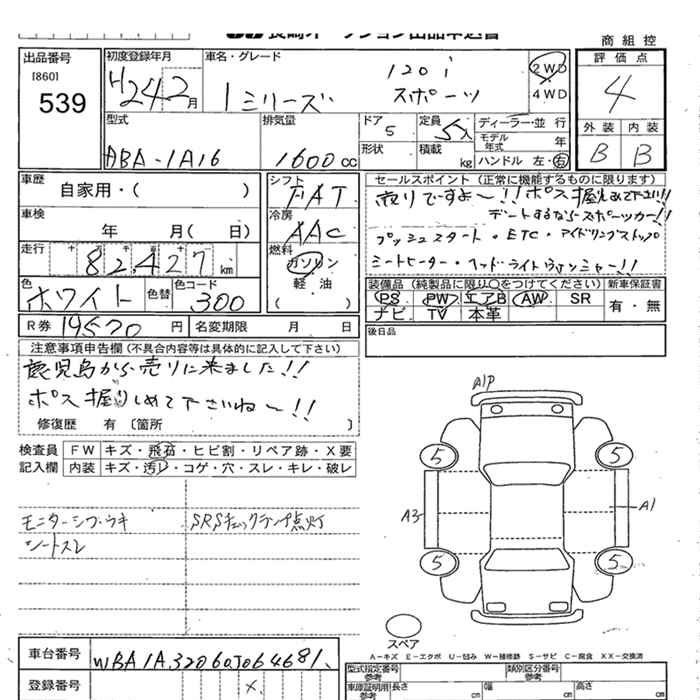 商組控
出品番号
[860]
539
初度登録年月
H24 2月
車名・グレード
120i
1シリーズ スポーツ
2WD
4WD
評価点
4
外装 内装
B B
型式
ABA-1A16
排気量
1600cc
ドア
5
形状
定員
5人
積載 kg
ディーラー・並行
モデル年式 年
ハンドル 左・右
車歴
自家用・( )
シフト
FAT
車検
年 月( 日)
冷房
AAC
走行
82,427km
燃料
ガソリン
軽油
( )
色
ホワイト
色替
色コード
300
R券 19570円
名変期限 月 日
セールスポイント(正常に機能するものに限ります)
売りですよ〜!!ポス握りしめて下さい!!
デートするならスポーツカー!!
プッシュスタート・ETC・アイドリングストップ
シートヒーター・ヘッドライトウォッシャー!!
装備品(純製品に限り○をつけてください)
新車保証書
PS PW エアB AW SR
ナビ TV 本革
有・無
後日品
注意事項申告欄(不具合内容等は具体的に記入して下さい)
鹿児島から売りに来ました!!
ポス握りしめて下さいね〜!!
修復歴 有 〔箇所 〕
検査員記入欄
FW キズ・飛石・ヒビ割・リペア跡・X要
内装 キズ・汚レ・コゲ・穴・スレ・キレ・破レ
モニターシブ・ウキ
SRSチェックランプ点灯
シートスレ
A1P
5
5
A3
A1
5
5
スペア
A-キズ E-エクボ U-凹み W-補修跡 S-サビ C-腐食 XX-交換済
車台番号
WBA1A32060J064681
登録番号
X
型式指定番号
参考
類別区分番号
参考
車庫証明用
参考
長さ cm
幅 cm
高さ cm